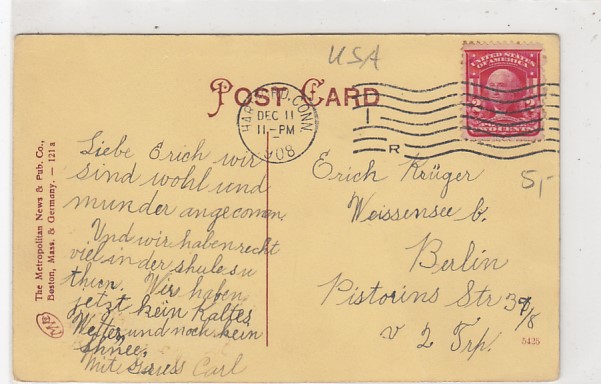 USA
POST CARD
HARTFORD, CONN.
DEC 11
11-PM
1908
R
UNITED STATES
OF AMERICA
2 2
TWO CENTS
5,-
Liebe Erich wir
sind wohl und
munder angecomm
Und wir haben recht
viel in der shule su
thun. Wir haben
jetzt kein Kaltes
Wetter und noch kein
Schnee.
Mit Gruss Carl
Erich Krüger
Weissensee b.
Berlin
Pistorius Str
v 2 Trp.
The Metropolitan News & Pub. Co.,
Boston, Mass. & Germany. — 121a
5425